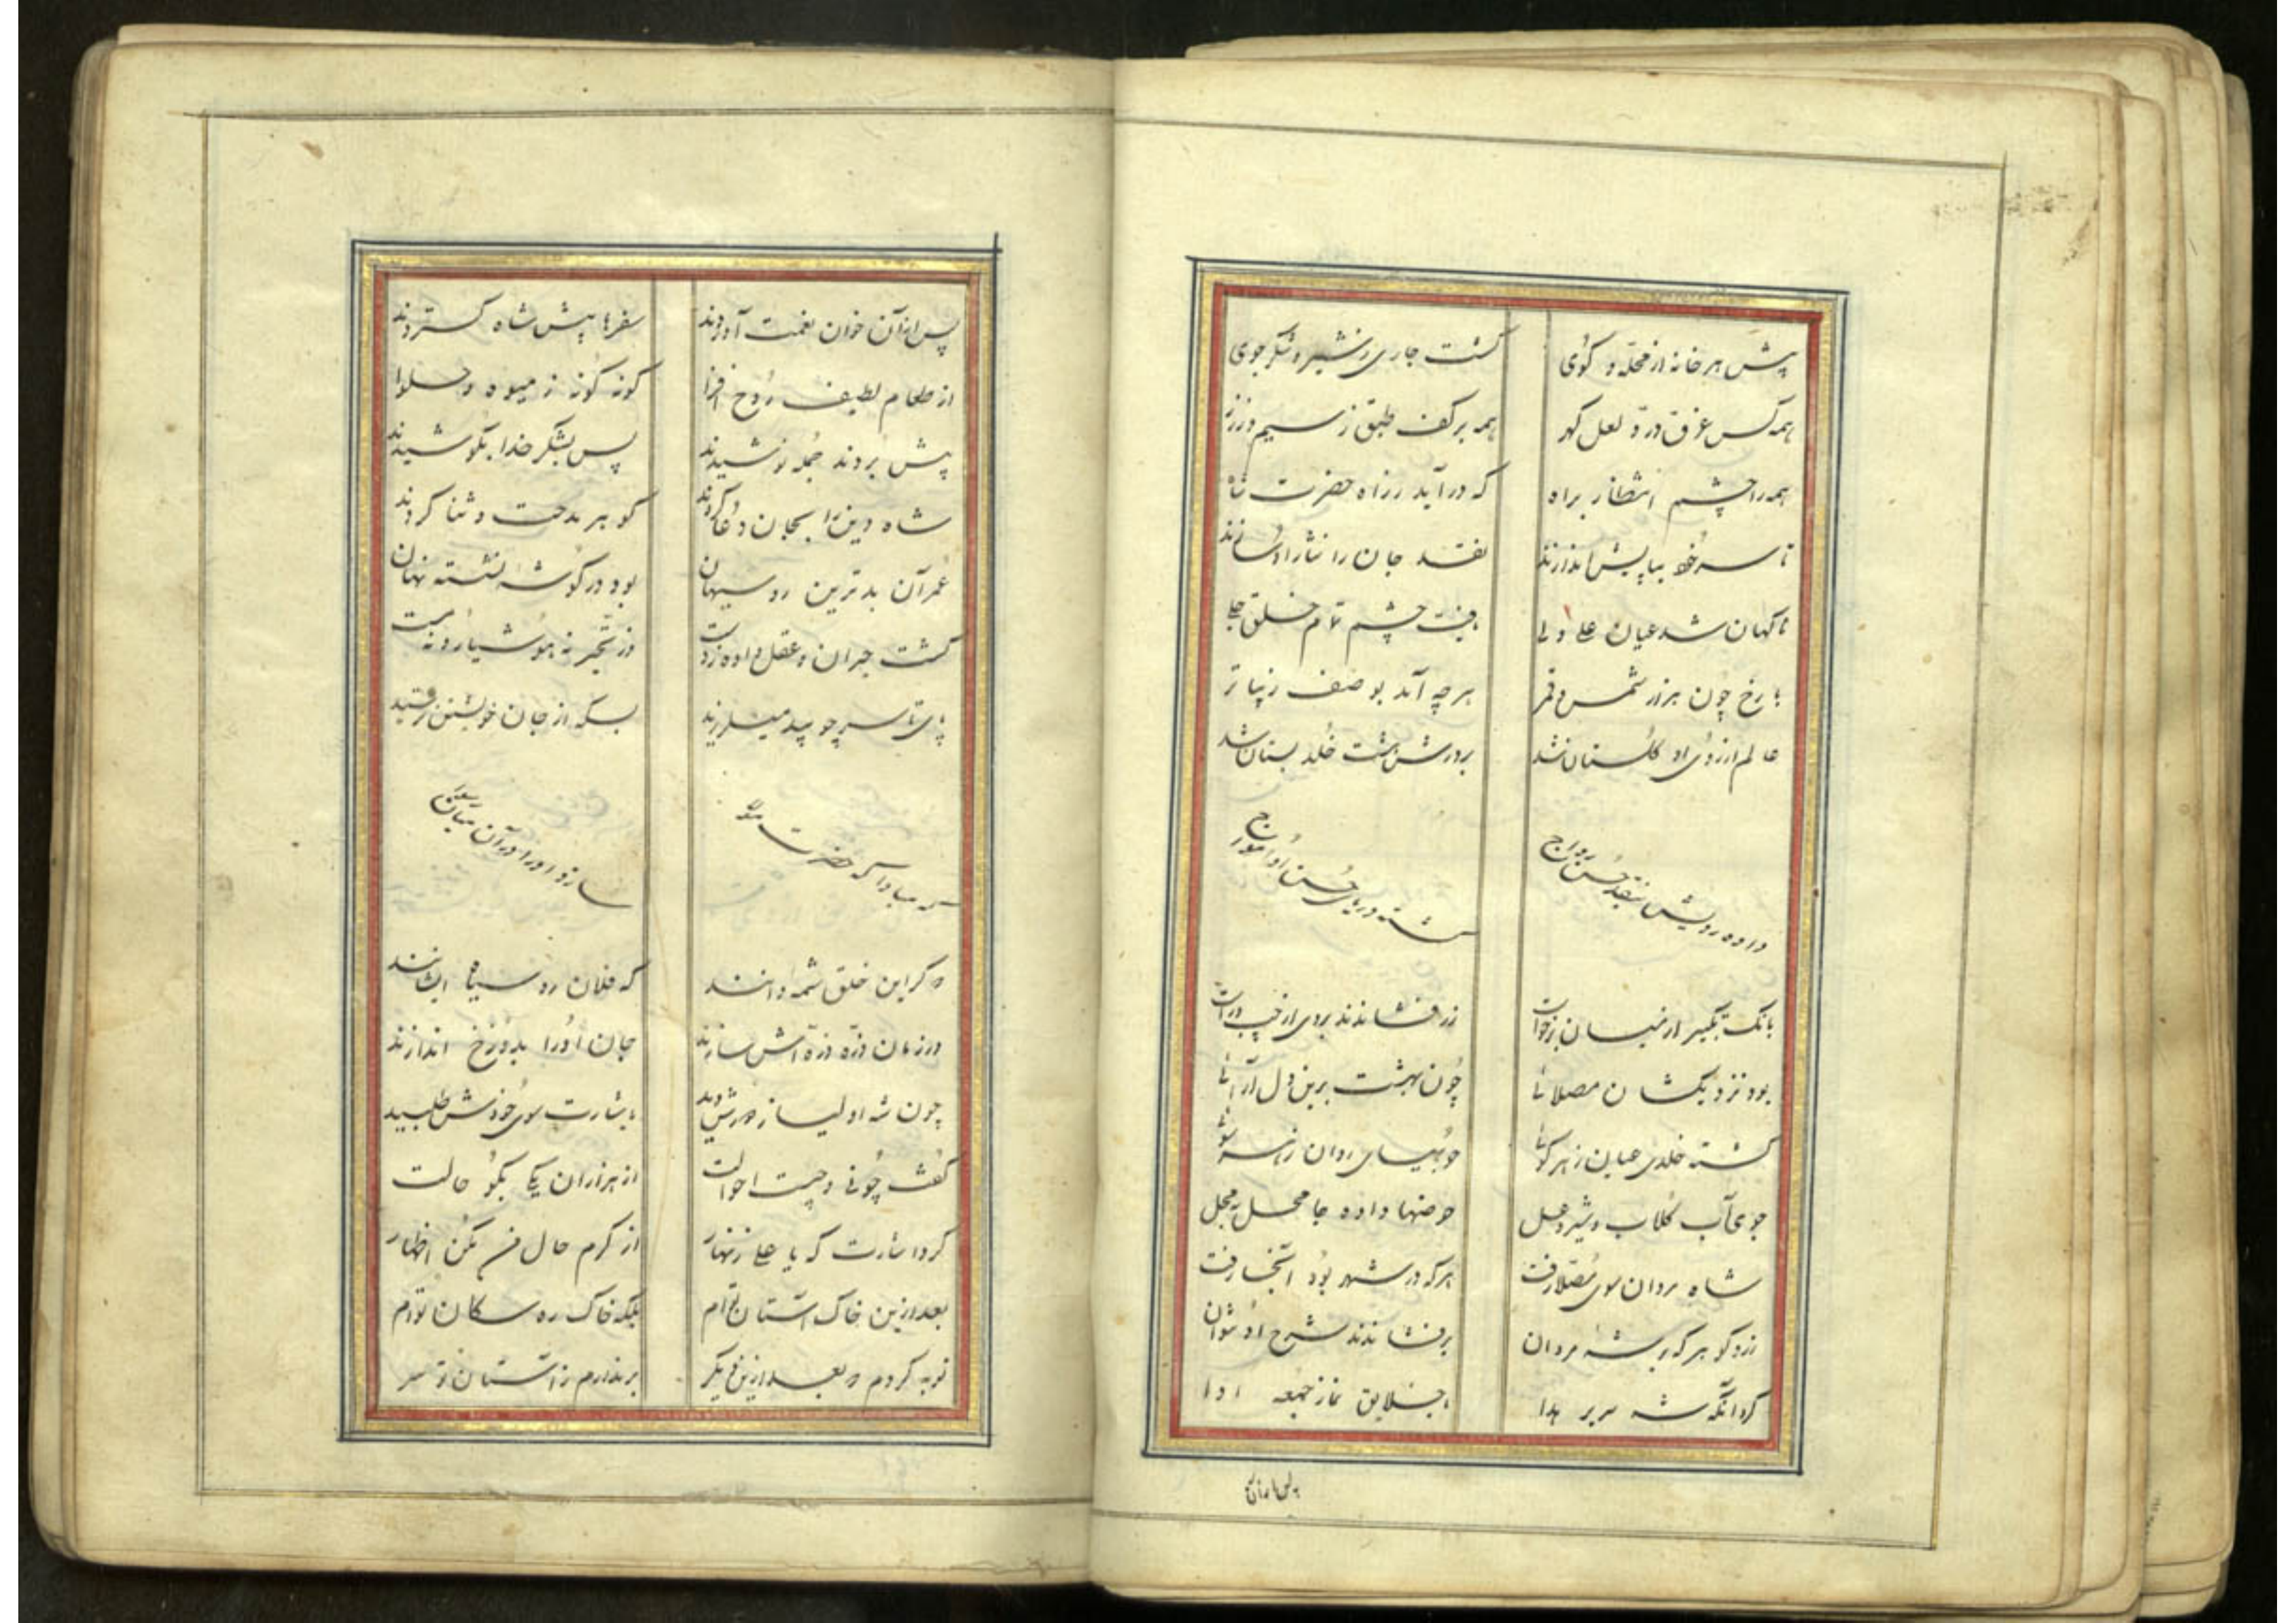 پیش هر خانه از محلّه و کوی گشت جاری ز شیر و شکر جوی
همه کس غرق درّ و لعل و گهر همه بر کف طبق ز سیم و ز زر
همه را چشم انتظار براه که در آید ز راه حضرت شاه
تا سر خود بپایش اندازند نقد جان را نثار او سازند
ناگهان شد عیان علی ولی یافت چشم تمام خلق جلی
با رخ چون هزار شمس و قمر هرچه آید بوصف زیباتر
عالم از روی او گلستان شد بدرش هشت خلد بستان شد
داده رویش بنقد حسن رواج گشته دریای حسن او امواج
بانگ تکبیر از میان برخواست زر فشاندند بروی از چپ و راست
بود نزدیکشان مصلائی چون بهشت برین دل آرائی
گشته خلدی عیان ز هر کوئی جویهای روان ز هر سوئی
جوی آب گلاب و شیر و عسل حوضها داده جا محل به محل
شاه مردان سوی مصلا رفت هرکه در شهر بود آنجا رفت
زر و گوهر که بر شه مردان برفشاندند شرح او نتوان
کرد آنگه شه سریر هدا با خلایق نماز جمعه ادا
پس از آن خوان
پس از آن خوان نعمت آوردند سفرها پیش شاه گستردند
از طعام لطیف روح افزا گونه گونه ز میوه و حلوا
پیش بردند جمله نوشیدند پس بشکر خدا بکوشیدند
شاه دین را بجان دعا کردند گوهر مدحت و ثنا کردند
عمر آن بدترین روسیهان بود در گوشه نشسته نهان
گشت حیران و عقل داده ز دست در تحیر نه هوشیار و نه مست
پای تا سر چو بید میلرزید بسکه از جان خویشتن ترسید
که مبادا که حضرت شاه سازد او را در آن میان
گر این خلق شمه دانند که فلان رو سیاه ایشانند
در زمان ذرّه ذرّه اش سازند جان او را بدوزخ اندازند
چون شه اولیا ز دورش دید باشارت سوی خودش طلبید
گفت چونی و چیست احوالت از هزاران یکی بگو حالت
کرد اشارت که یا علی زنهار از کرم حال من مکن اظهار
بعد ازین خاک آستان توام بلکه خاک ره سگان توام
توبه کردم که بعد ازین دیگر برندارم ز آستان تو سر